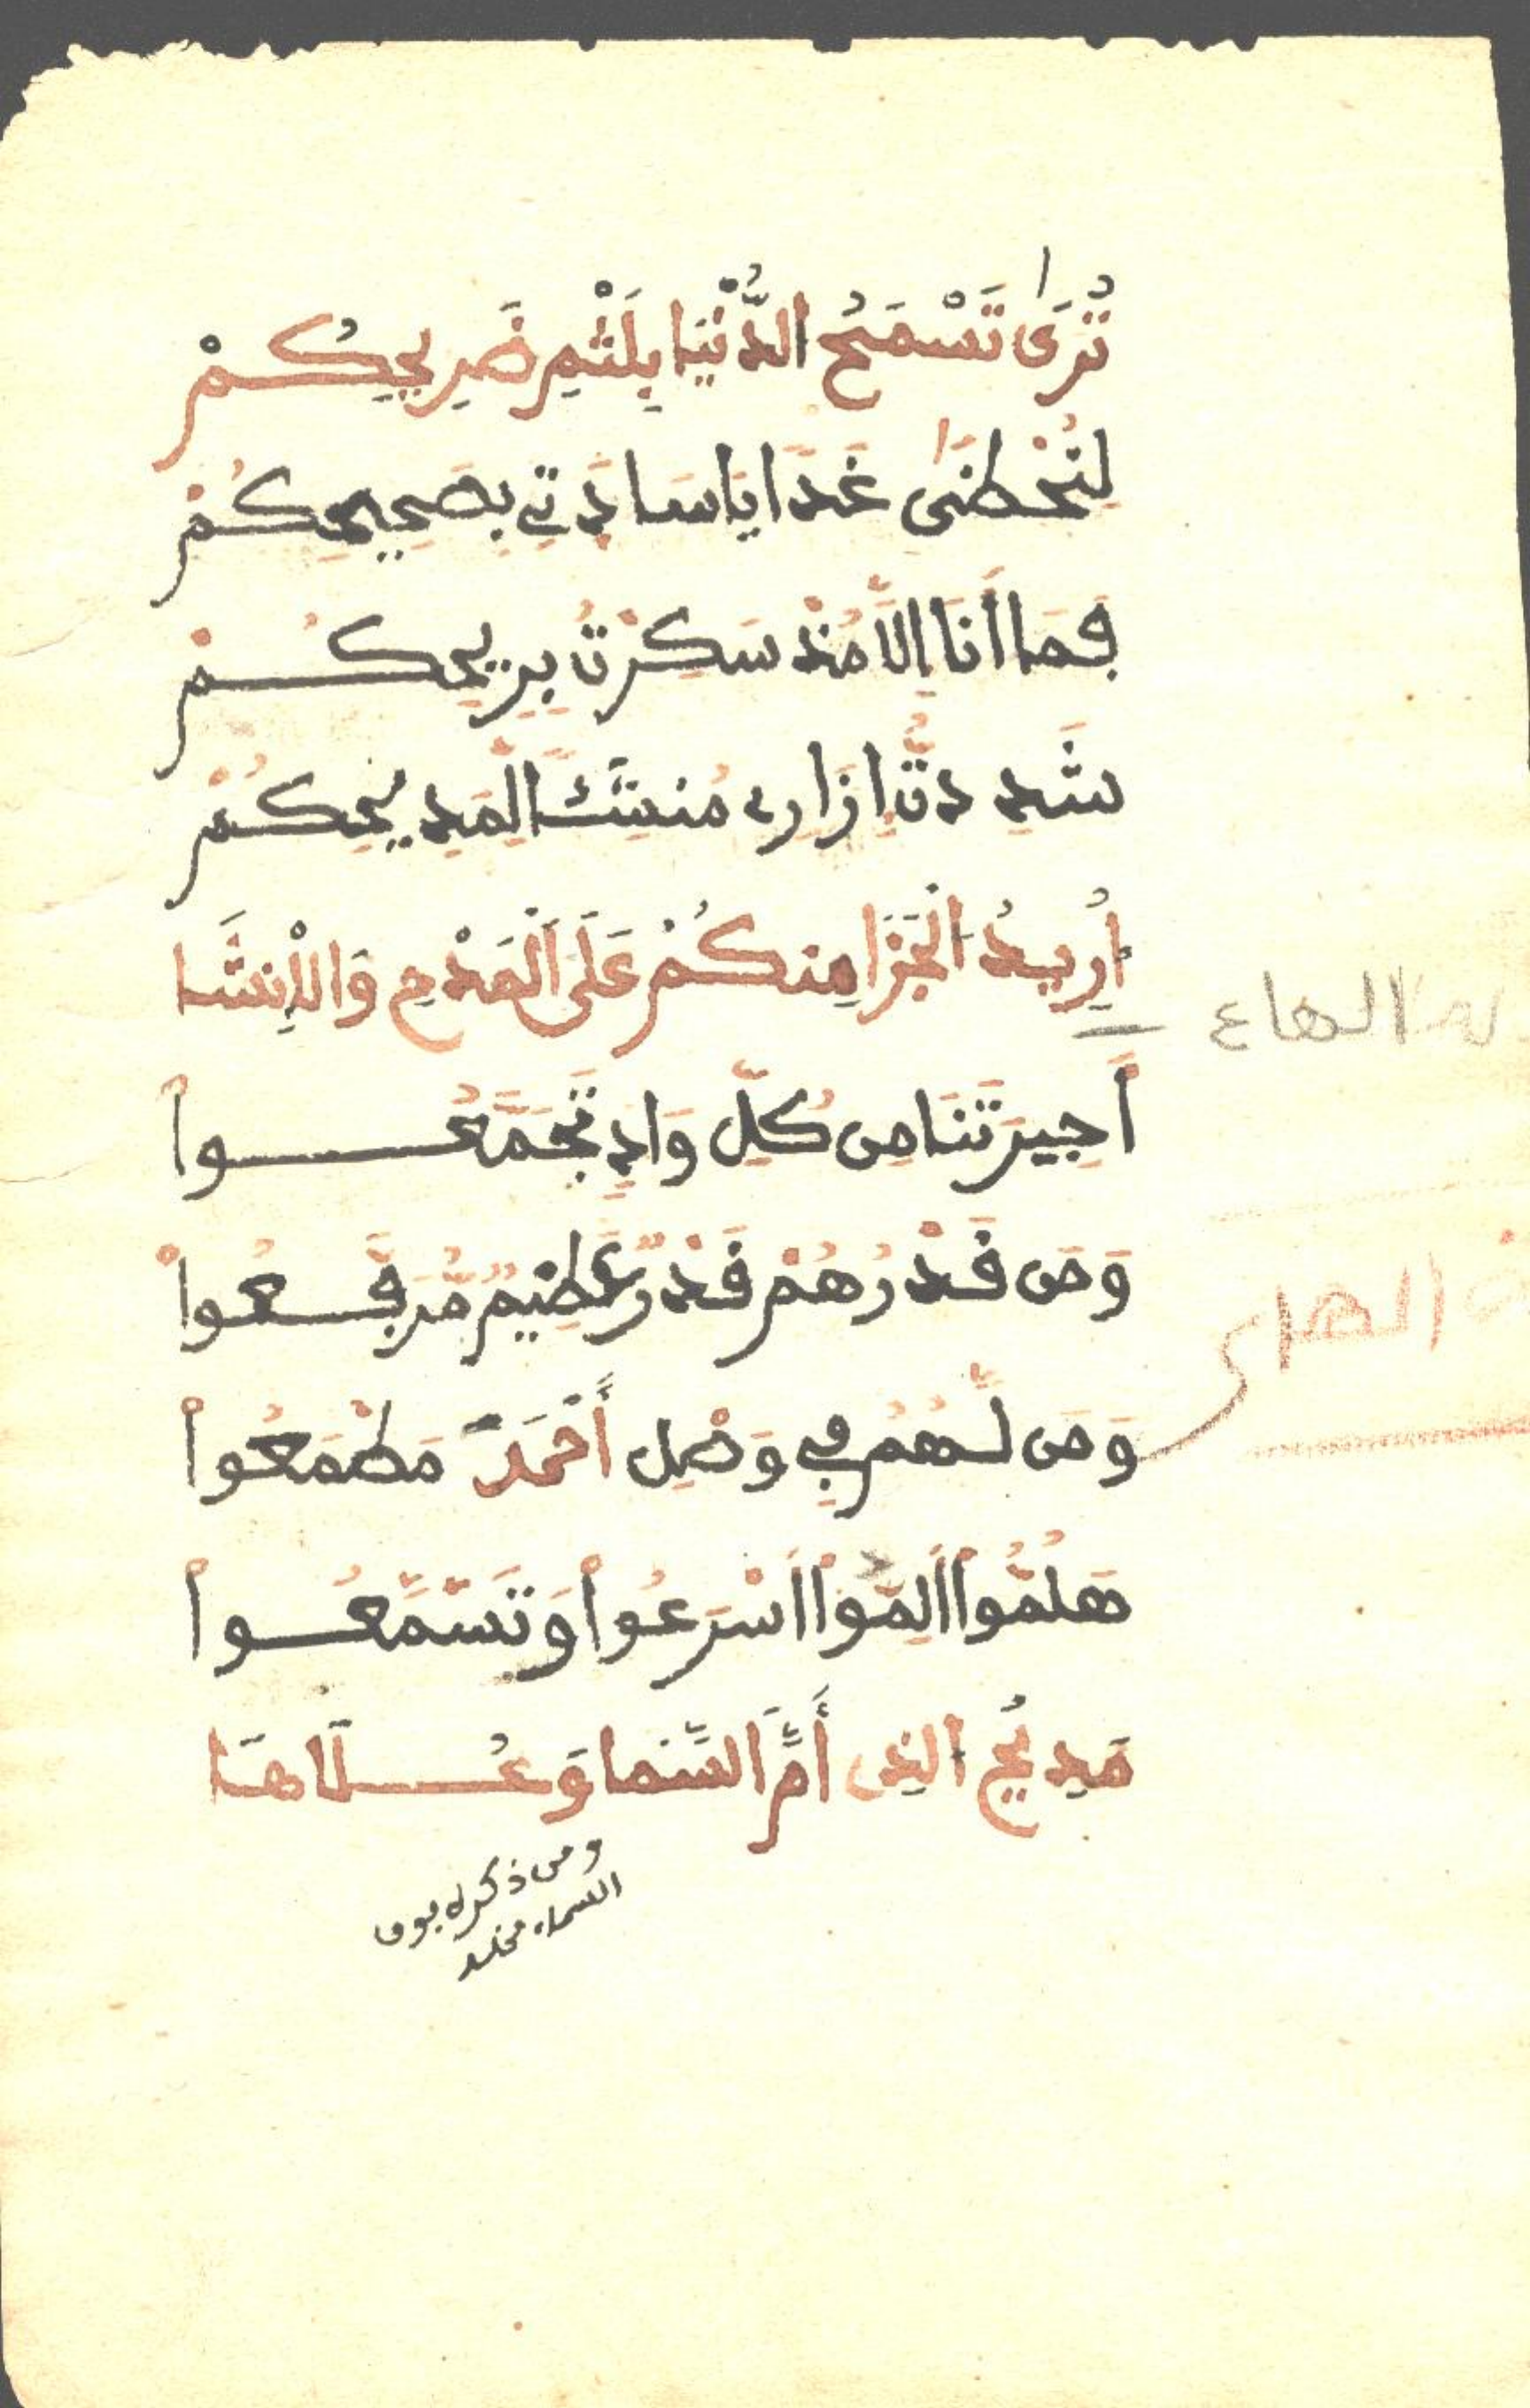 تُرَى تَسْمَحُ الدُّنْيَا بِلَثْمِ ضَرِيحِكُمْ
لِتُحْظِنَى غَدًا يَا سَادَتِي بِصَحِيحِكُمْ
فَمَا أَنَا إِلَّا مُذْ سَكِرْتُ بِرِيحِكُمْ
شَدِدتُّ إِزَارِى مُنشِئًا لِمَدِيحِكُمْ
أُرِيدُ الْجَزَا مِنكُمْ عَلَى الْمَدْحِ وَالْإِنشَا
لة الهاء
أَجِيرَتَنَا مِن كُلِّ وَادٍ تَجَمَّعُوا
وَمَن قَدْرُهُمْ قَدْرٌ عَظِيمٌ مُّرَفَّعُوا
الهاء
وَمَن لَّهُمْ فِي وَصْلِ أَحْمَدَ مَطْمَعُوا
هَلُمُّوا أَلِمُّوا أَسْرِعُوا وَتَسَمَّعُوا
مَدِيحُ الذِى أَمَّ السَّمَا وَعُلَاهَا
ومن ذكره بوق
السماء مخلد